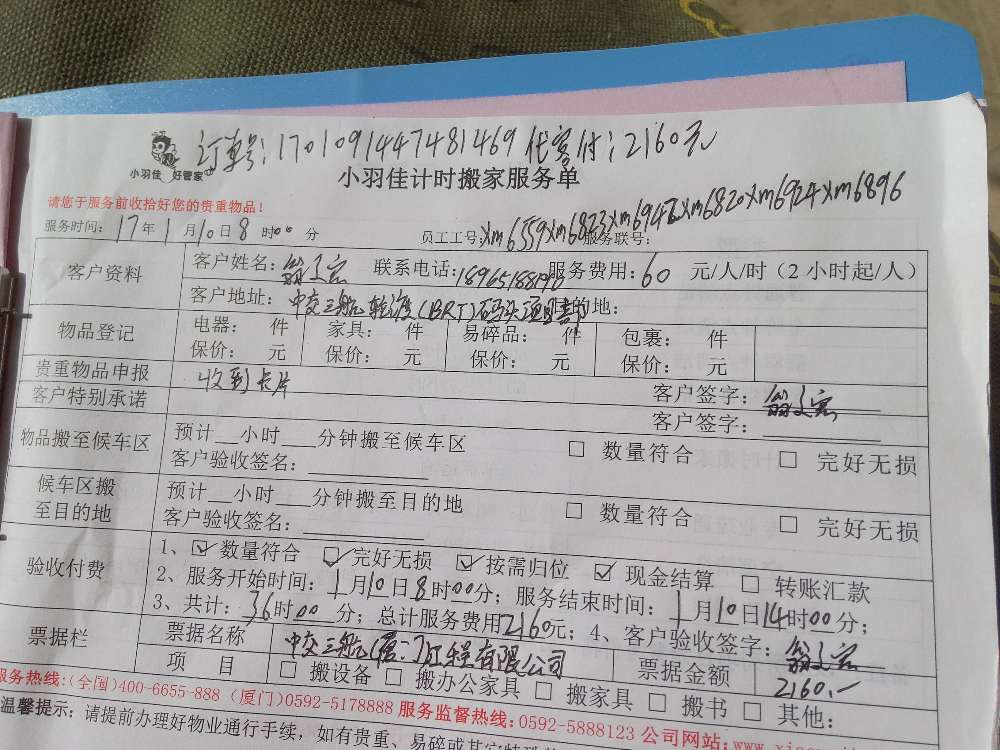 订单号:1701091447481469 代客付:2160元
小羽佳 好管家
小羽佳计时搬家服务单
请您于服务前收拾好您的贵重物品!
服务时间:17年1月10日8时00分 员工工号:xm6559xm6823xm6947xm6820xm6924xm6896 服务联号:
客户资料 客户姓名: 联系电话:18965188196 服务费用:60元/人/时(2小时起/人)
客户地址:中交三航轮渡(BRT)码头项目部 目的地:
物品登记 电器: 件 家具: 件 易碎品: 件 包裹: 件
保价: 元 保价: 元 保价: 元 保价: 元
贵重物品申报 收到卡片 客户签字:
客户特别承诺 客户签字:
物品搬至候车区 预计__小时___分钟搬至候车区 □ 数量符合 □ 完好无损
客户验收签名:
候车区搬至目的地 预计__小时___分钟搬至目的地 □ 数量符合 □ 完好无损
客户验收签名:
验收付费 1、☑数量符合 ☑完好无损 ☑按需归位 ☑现金结算 □ 转账汇款
2、服务开始时间:1月10日8时00分;服务结束时间:1月10日14时00分;
3、共计:36时00分;总计服务费用2160元;4、客户验收签字:
票据栏 票据名称 中交三航(厦门)工程有限公司 票据金额 2160.-
项 目 □ 搬设备 □ 搬办公家具 □ 搬家具 □ 搬书 □ 其他:
服务热线:(全国)400-6655-888 (厦门)0592-5178888 服务监督热线:0592-5888123 公司网站:www.
温馨提示:请提前办理好物业通行手续,如有贵重、易碎或其它特殊